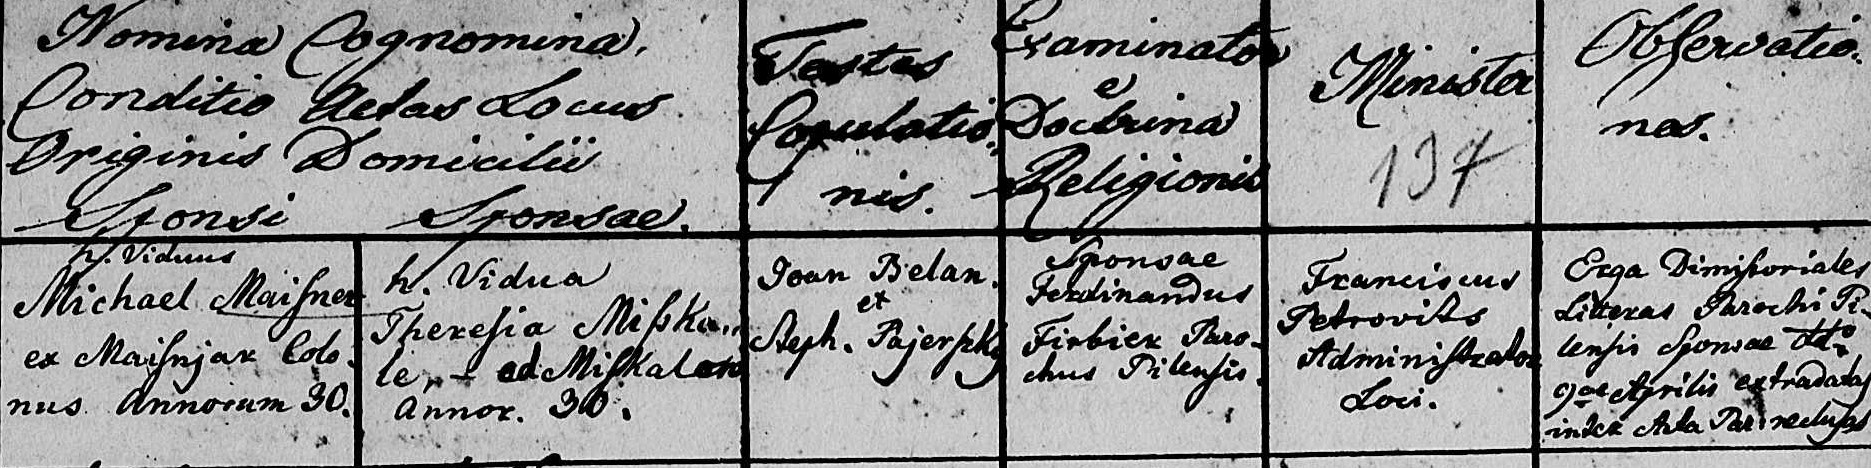 Nomina Cognomina,
Conditio Aetas Locus
Originis Domicilii
Sponsi Sponsae.
Testes
Copulatio-
nis.
Examinator
e
Doctrina
Religionis
Minister
137
Observatio-
nes.
h. Viduus
Michael Maisner
ex Maisnjar Colo-
nus Annorum 30.
h. Vidua
Theresia Miska-
le,
Annor. 30.
Joan Belan.
et
Steph. Pajerszky
Sponsae
Ferdinandus
Firbier Paro-
chus Pilensis.
Franciscus
Petrovits
Administrator
Loci.
Erga Dimissoriales
Litteras Parochi Pi-
lensis Sponsae
9ae Aprilis extradatas
inter Acta Par. reclusas